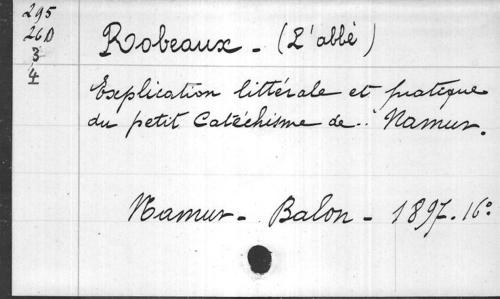 295
26D
3
4
Robeaux - (L'abbé)
Explication littérale et pratique
du petit Catéchisme de Namur.
Namur - Balon - 1897. 16°